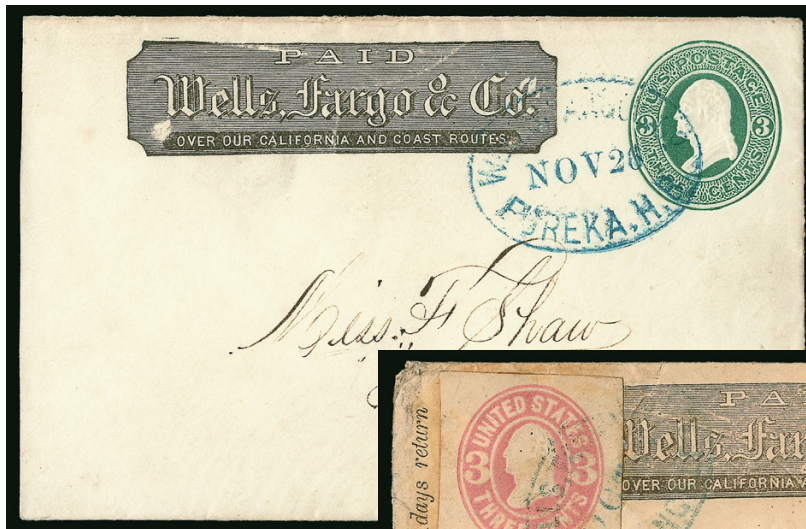 PAID
Wells, Fargo & Co.
OVER OUR CALIFORNIA AND COAST ROUTES.
U.S. POSTAGE
3 3
THREE CENTS
NOV 26
EUREKA. H.
Miss. F Shaw
days return
UNITED STATES
3 3
THREE
PA
Wells, Far
OVER OUR CALIFORNIA